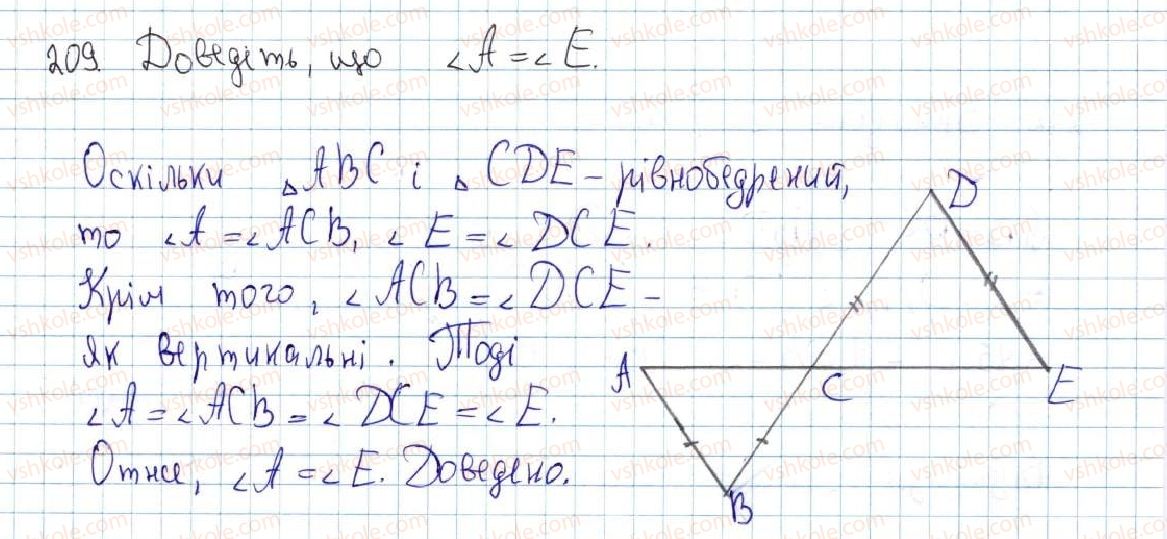 209. Доведіть, що ∠A = ∠E.
Оскільки △ABC і △CDE – рівнобедрений,
то ∠A = ∠ACB, ∠E = ∠DCE.
Крім того, ∠ACB = ∠DCE –
як вертикальні. Тоді
∠A = ∠ACB = ∠DCE = ∠E.
Отже, ∠A = ∠E. Доведено.
D
A
C
E
B
vshkole.com